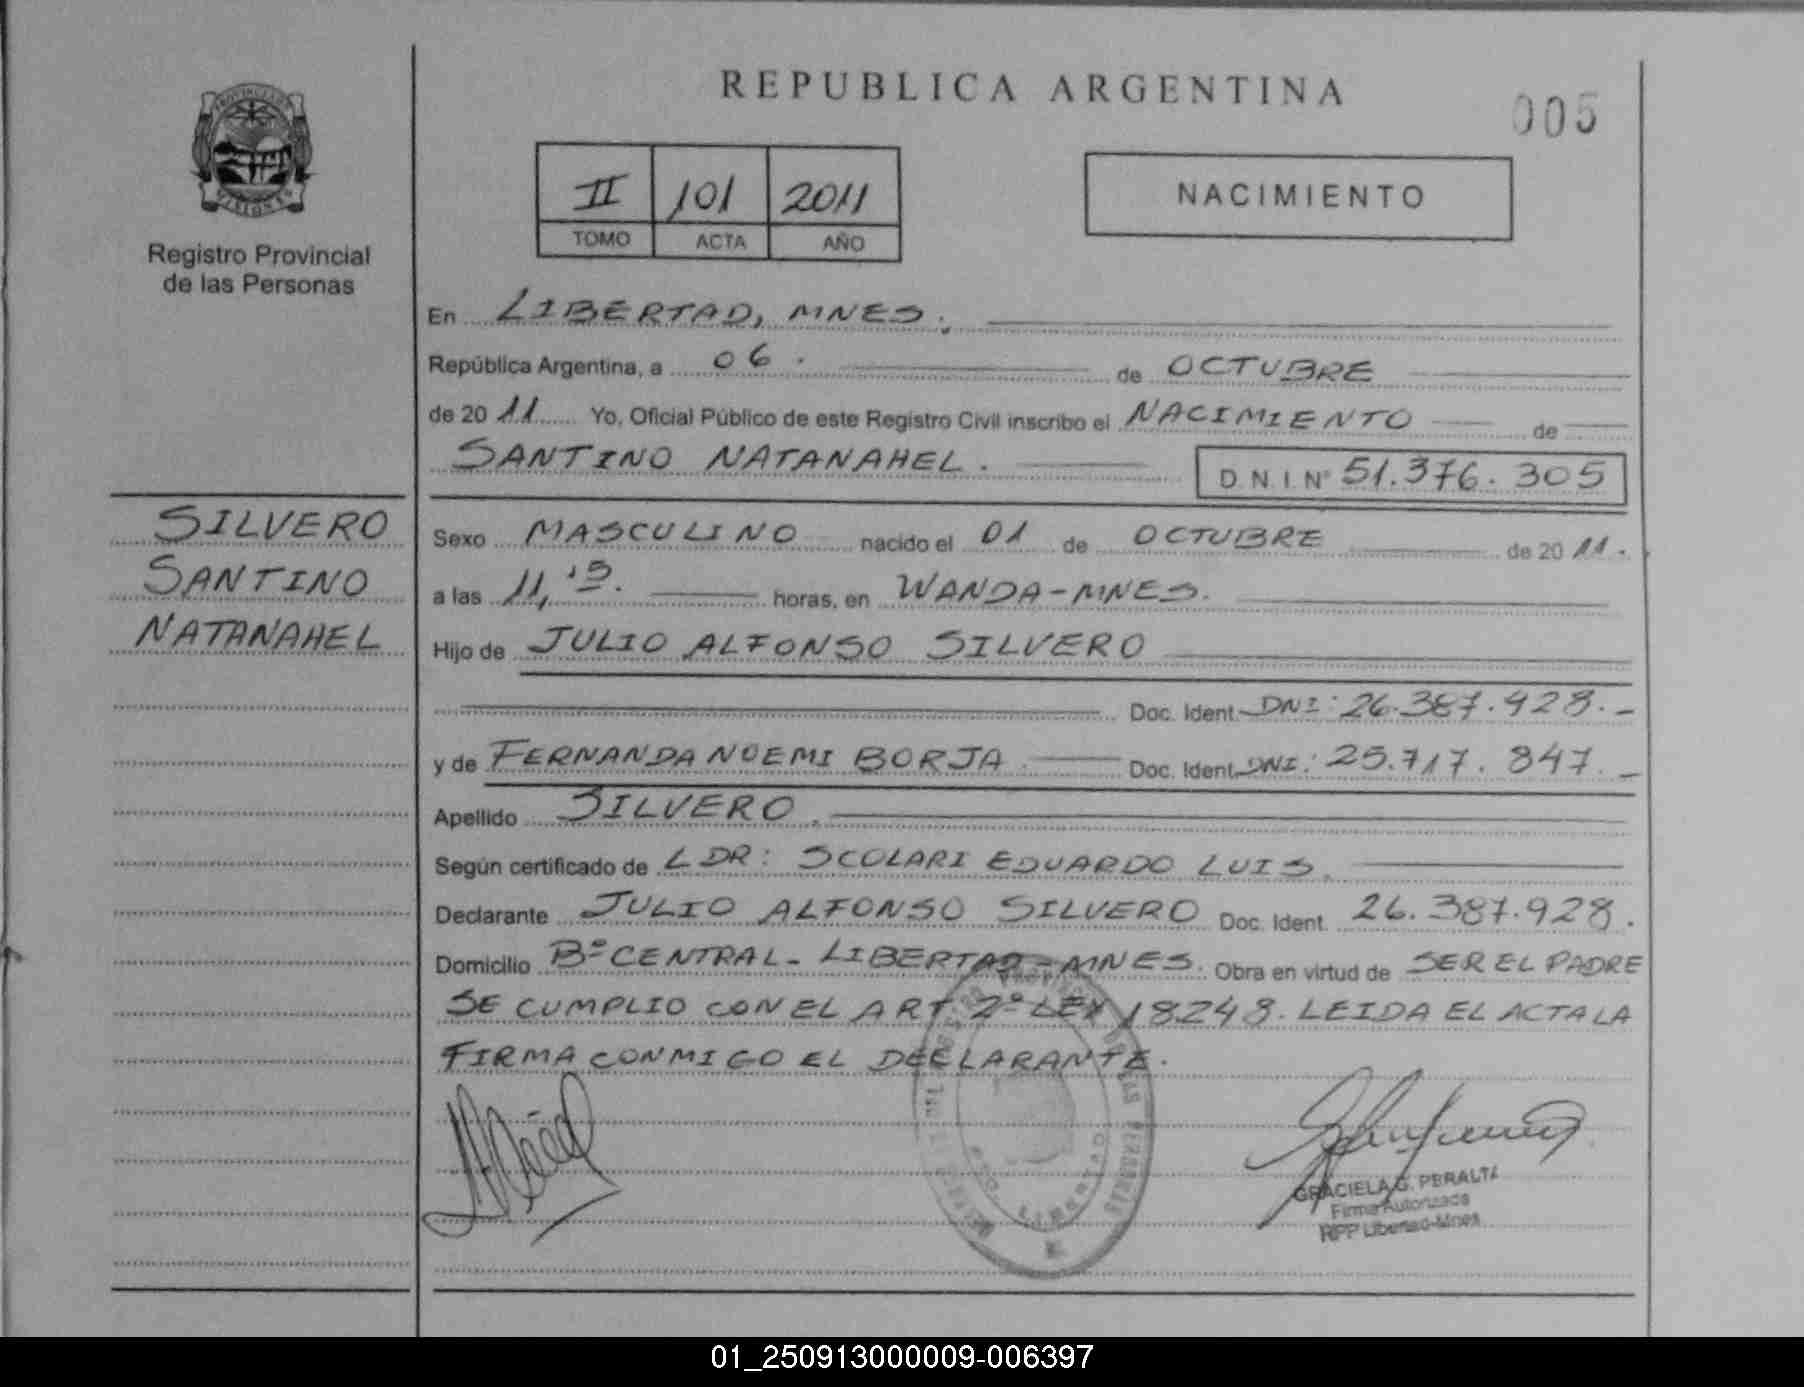 REPUBLICA ARGENTINA
005
PROVINCIA DE MISIONES
Registro Provincial
de las Personas
II 101 2011
TOMO ACTA AÑO
NACIMIENTO
En LIBERTAD, MNES.
República Argentina, a 06. de OCTUBRE
de 2011 Yo, Oficial Público de este Registro Civil inscribo el NACIMIENTO de
SANTINO NATANAHEL. D.N.I. Nº 51.376.305
SILVERO
SANTINO
NATANAHEL
Sexo MASCULINO nacido el 01 de OCTUBRE de 2011.
a las 11,15. horas, en WANDA-MNES.
Hijo de JULIO ALFONSO SILVERO
Doc. Ident. DNI: 26.387.928.-
y de FERNANDA NOEMI BORJA Doc. Ident. DNI: 25.717.847.-
Apellido SILVERO.
Según certificado de LDR: SCOLARI EDUARDO LUIS.
Declarante JULIO ALFONSO SILVERO Doc. Ident. 26.387.928.
Domicilio Bº CENTRAL- LIBERTAD-MNES. Obra en virtud de SER EL PADRE
SE CUMPLIO CON EL ART 2º LEY 18248. LEIDA EL ACTA LA
FIRMA CONMIGO EL DECLARANTE.
GRACIELA G. PERALTA
Firma Autorizada
RPP Libertad-Mnes
01_250913000009-006397